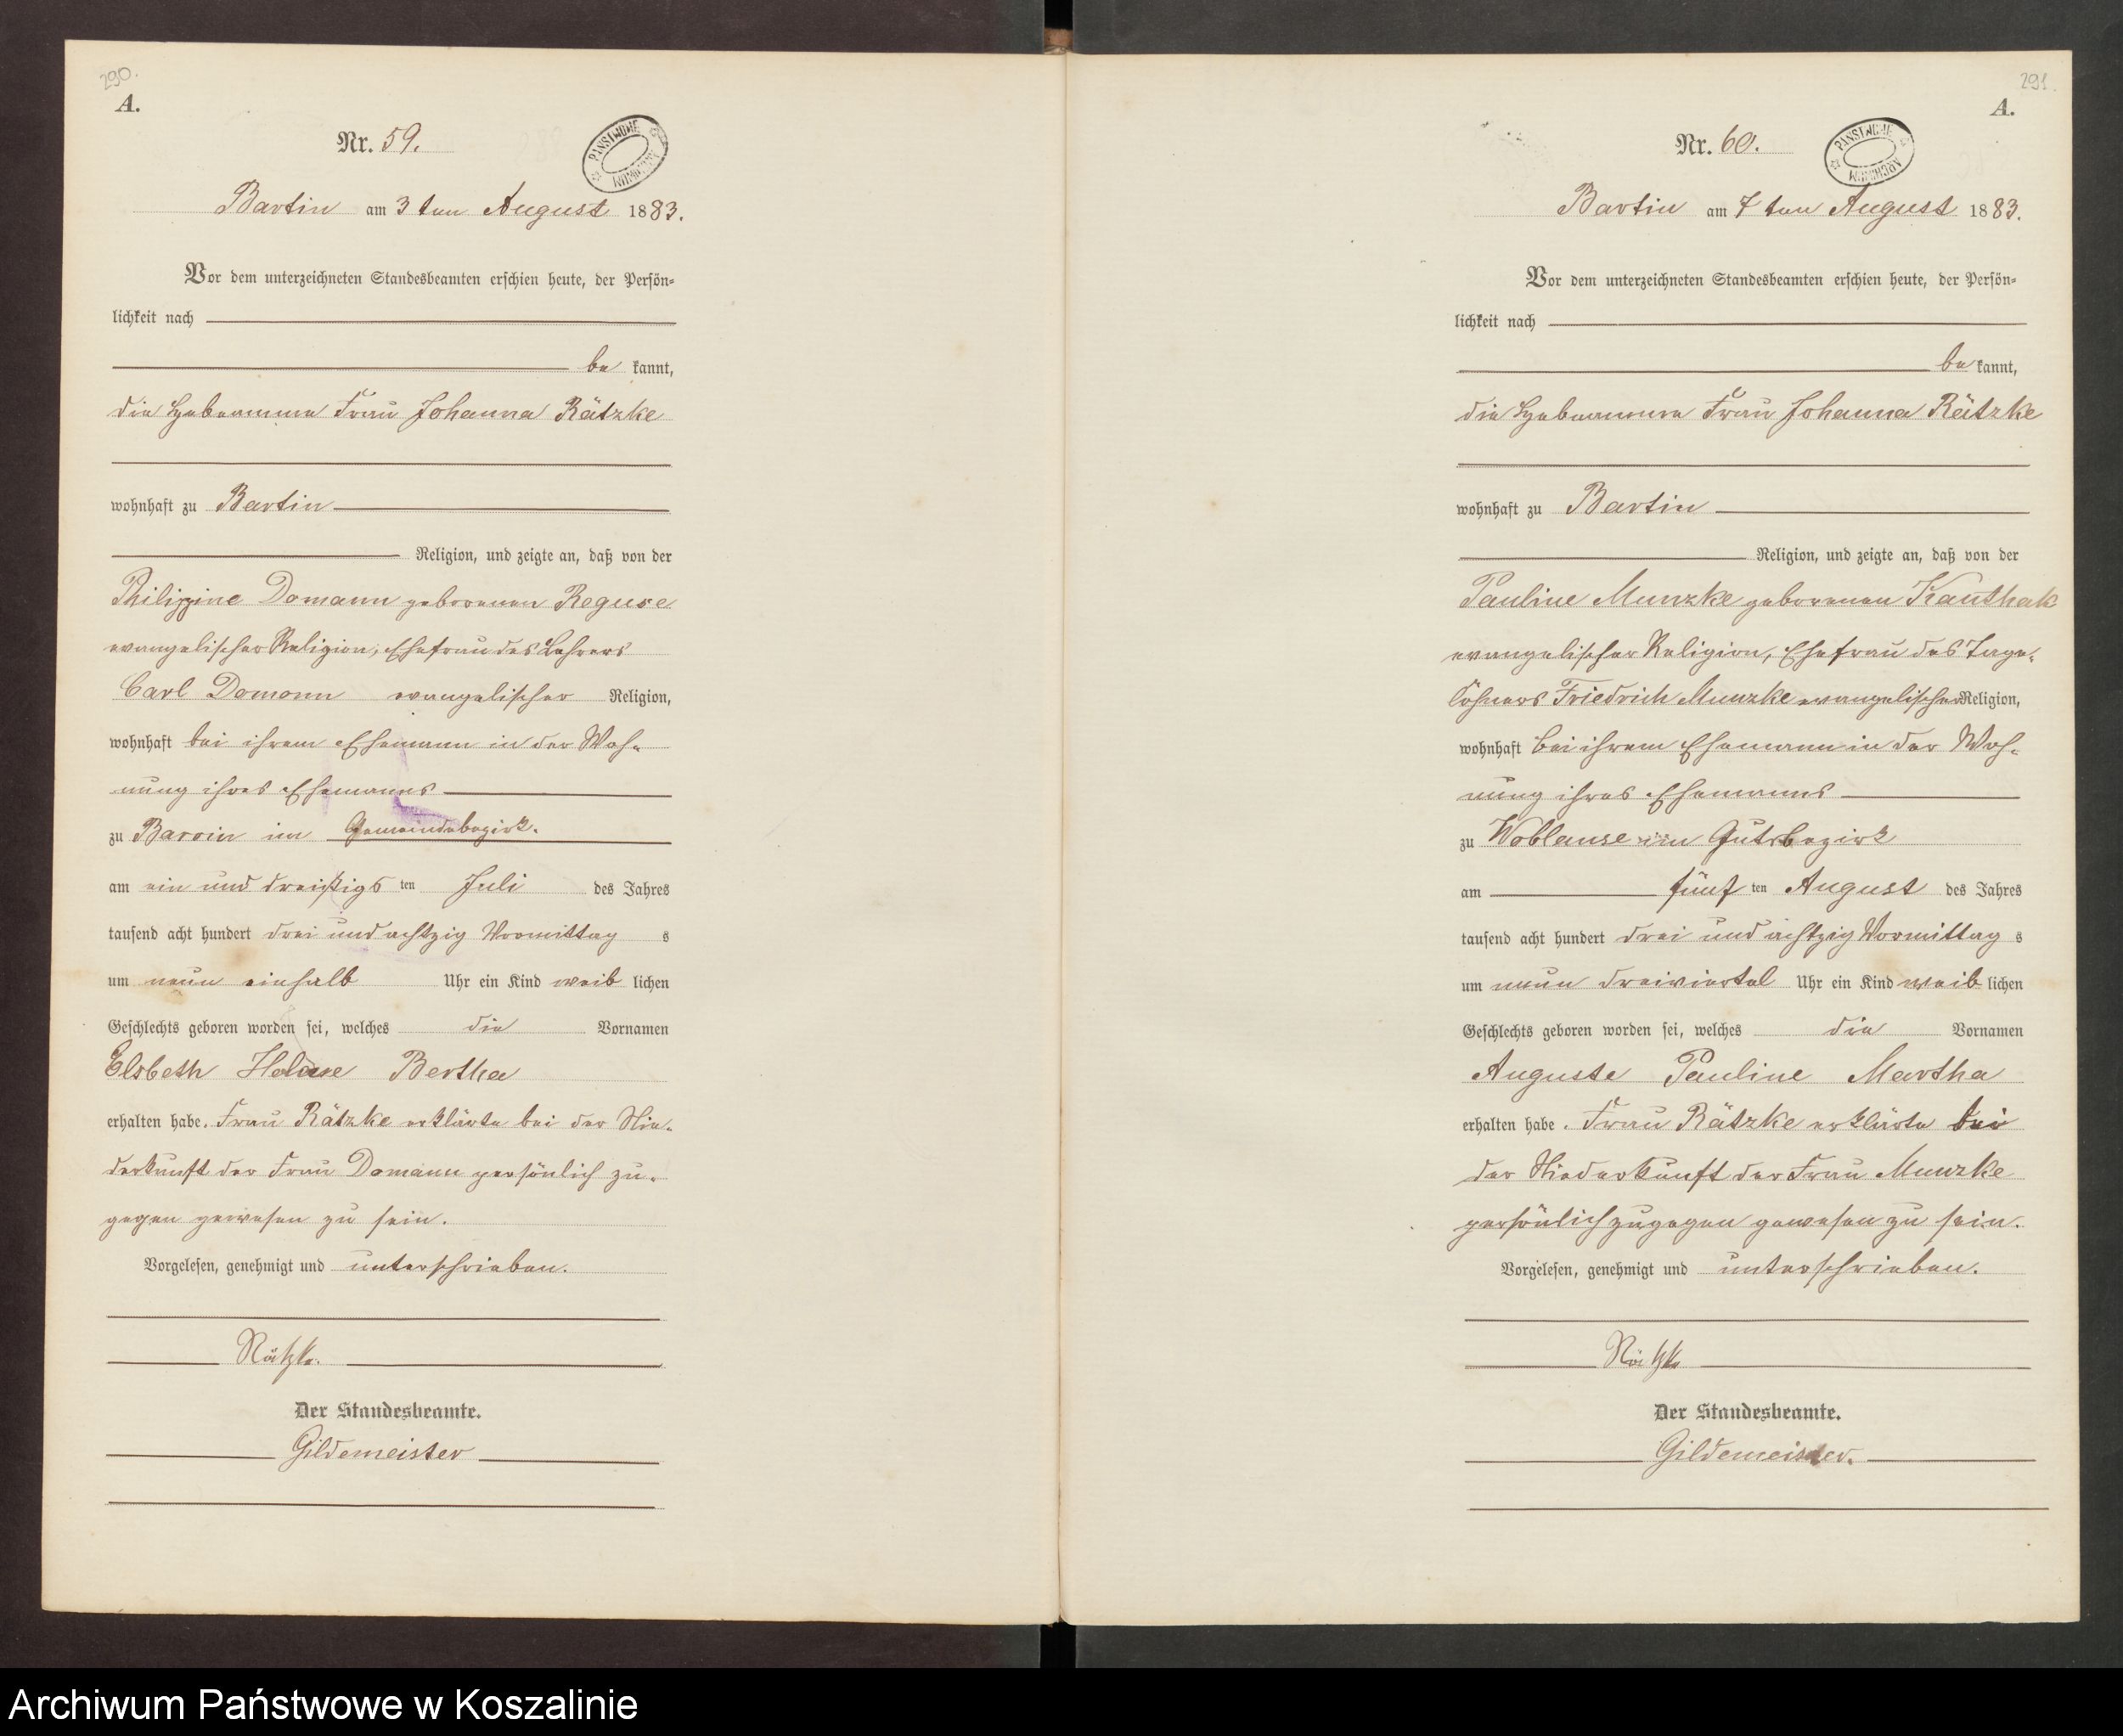 290.
A.
Nr. 59.
PANSTWOWE ARCHIWUM
Bartin am 3 ten August 1883.
Vor dem unterzeichneten Standesbeamten erschien heute, der Persön-
lichkeit nach
be kannt,
die Hebeamme Frau Johanna Rätzke
wohnhaft zu Bartin
Religion, und zeigte an, daß von der
Philippine Domann geborenen Reguse
evangelischer Religion, Ehefrau des Lehrers
Carl Domann evangelischer Religion,
wohnhaft bei ihrem Ehemann in der Woh-
nung ihres Ehemanns
zu Barvin im Gemeindebezirk.
am ein und dreißigs ten Juli des Jahres
tausend acht hundert drei und achtzig Vormittag s
um neun einhalb Uhr ein Kind weib lichen
Geschlechts geboren worden sei, welches die Vornamen
Elsbeth Helene Bertha
erhalten habe. Frau Rätzke erklärte bei der Nie-
derkunft der Frau Domann persönlich zu-
gegen gewesen zu sein.
Vorgelesen, genehmigt und unterschrieben.
Rätzke.
Der Standesbeamte.
Gildemeister
291.
A.
Nr. 60.
PANSTWOWE ARCHIWUM
Bartin am 7 ten August 1883.
Vor dem unterzeichneten Standesbeamten erschien heute, der Persön-
lichkeit nach
be kannt,
die Hebeamme Frau Johanna Rätzke
wohnhaft zu Bartin
Religion, und zeigte an, daß von der
Pauline Munzke geborenen Kauthak
evangelischer Religion, Ehefrau des Tage-
löhners Friedrich Munzke evangelischer Religion,
wohnhaft bei ihrem Ehemann in der Woh-
nung ihres Ehemanns
zu Woblanse im Gutsbezirk
am fünf ten August des Jahres
tausend acht hundert drei und achtzig Vormittag s
um neun dreiviertel Uhr ein Kind weib lichen
Geschlechts geboren worden sei, welches die Vornamen
Auguste Pauline Martha
erhalten habe. Frau Rätzke erklärte bei
der Niederkunft der Frau Munzke
persönlich zugegen gewesen zu sein.
Vorgelesen, genehmigt und unterschrieben.
Rätzke
Der Standesbeamte.
Gildemeister.
Archiwum Państwowe w Koszalinie